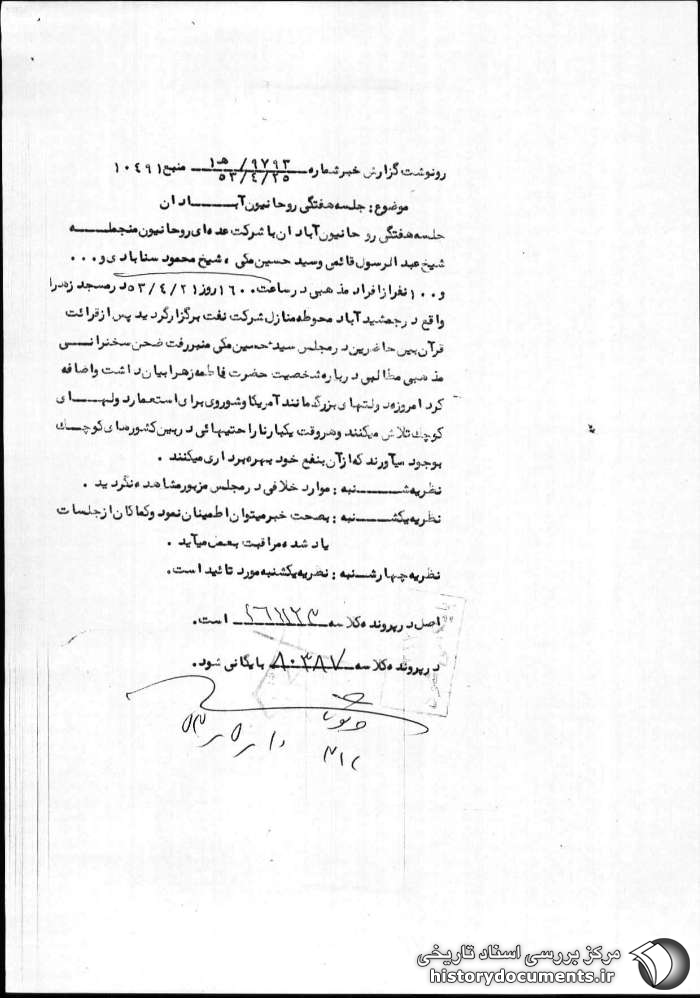 رونوشت گزارش خبر شماره ۹۷۹۳/ هـ۱ منبع ۱۰۴۹۱
۵۳/۴/۲۵
موضوع : جلسه هفتگی روحانیون آبادان
جلسه هفتگی روحانیون آبادان با شرکت عده‌ای روحانیون منجمله
شیخ عبدالرسول قائمی وسید حسین مکی ، شیخ محمود سنابادی و ...
و ۱۰۰ نفر از افراد مذهبی در ساعت ۱۶۰۰ روز ۵۳/۴/۲۱ در مسجد زهرا
واقع در جمشید آباد محوطه منازل شرکت نفت برگزار گردید پس از قرائت
قرآن بین حاضرین در مجلس سید حسین مکی منبر رفت ضمن سخنرانی
مذهبی مطالبی درباره شخصیت حضرت فاطمه زهرا بیان داشت واضافه
کرد امروزه دولتهای بزرگ مانند آمریکا وشوروی برای استعمار دولتهای
کوچک تلاش میکنند وهر وقت یکبار ناراحتیهائی در بین کشورهای کوچک
بوجود میآورند که از آن بنفع خود بهره برداری میکنند .
نظریه شنبه : موارد خلافی در مجلس مزبور مشاهده نگردید .
نظریه یکشنبه : بصحت خبر میتوان اطمینان نمود وکماکان از جلسات
یاد شده مراقبت بعمل میآید .
نظریه چهارشنبه : نظریه یکشنبه مورد تائید است.
اصل در پرونده کلاسه است.
در پرونده کلاسه ۸۰۳۸۷ بایگانی شود.
مرکز بررسی اسناد تاریخی
historydocuments.ir